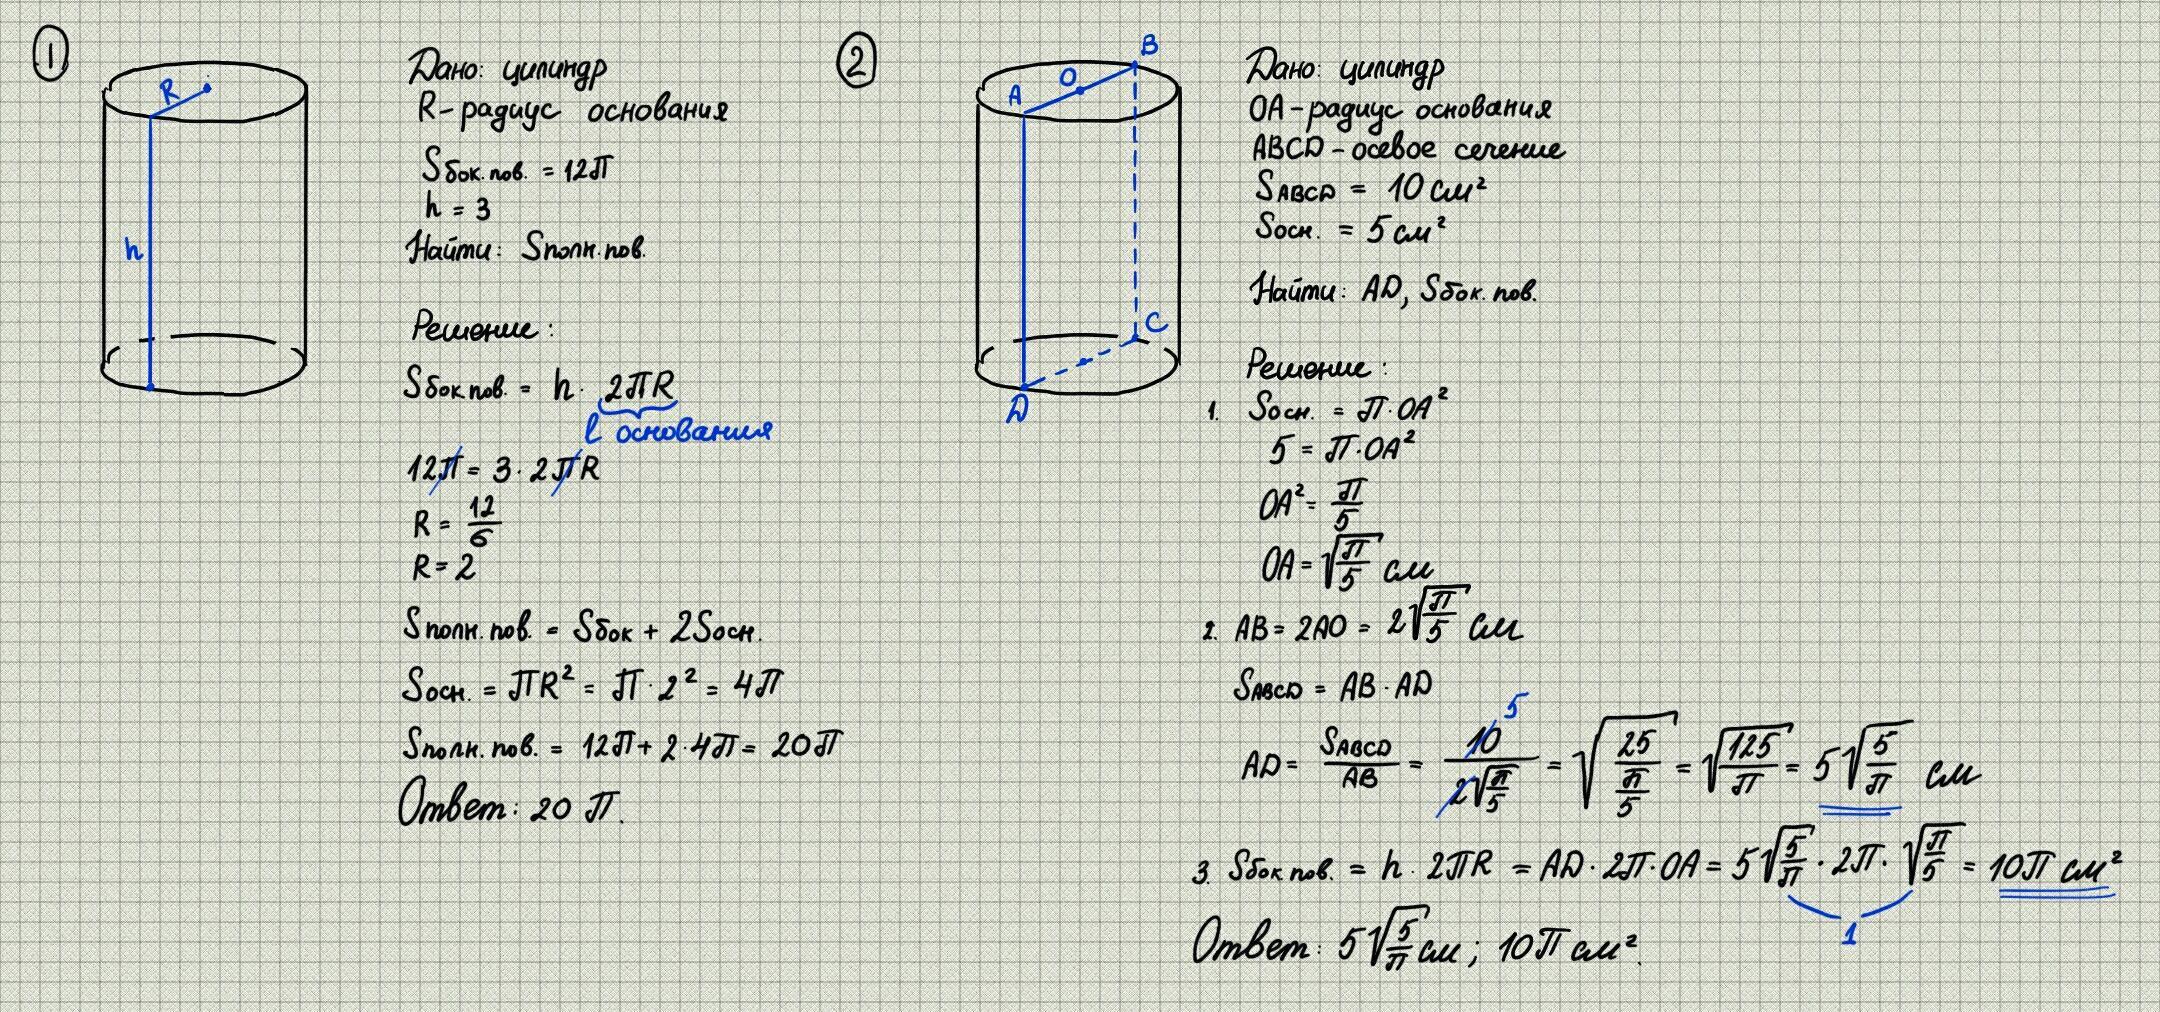 1
R
h
Дано: цилиндр
R - радиус основания
Sбок.пов. = 12π
h = 3
Найти: Sполн.пов.
Решение:
Sбок.пов. = h · 2πR
l основания
12π = 3 · 2πR
R = 12/6
R = 2
Sполн.пов. = Sбок + 2Sосн.
Sосн. = πR² = π · 2² = 4π
Sполн.пов. = 12π + 2·4π = 20π
Ответ: 20π.
2
B
O
A
C
D
Дано: цилиндр
OA - радиус основания
ABCD - осевое сечение
SABCD = 10 см²
Sосн. = 5 см²
Найти: AD, Sбок.пов.
Решение:
1. Sосн. = π·OA²
5 = π·OA²
OA² = π/5
OA = √(π/5) см
2. AB = 2AO = 2√(π/5) см
SABCD = AB · AD
5
AD = SABCD/AB = 10/(2√(π/5)) = √(25/(π/5)) = √(125/π) = 5√(5/π) см
3. Sбок.пов. = h · 2πR = AD · 2π · OA = 5√(5/π) · 2π · √(π/5) = 10π см²
1
Ответ: 5√(5/π) см; 10π см².